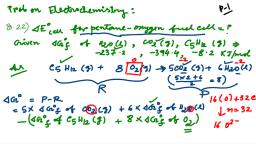 P-1
Test on Electrochemistry:
8.22) ΔE°cell for pentane-oxygen fuel cell = ?
Given ΔG°f of H2O(l), CO2(g), C5H12(g) ⇒
-237.2 -394.4 -8.2 KJ/mol
Ans. C5H12(g) + 8 O2(g) → 5CO2(g) + 6H2O(l)
R P
(5×2+6/2 = 8)
ΔG° = P-R
= 5× ΔG°f of CO2(g) + 6× ΔG°f of H2O(l)
-(ΔG°f of C5H12(g) + 8× ΔG°f of O2)
16(0)+32e
↓ n=32
16 O2-